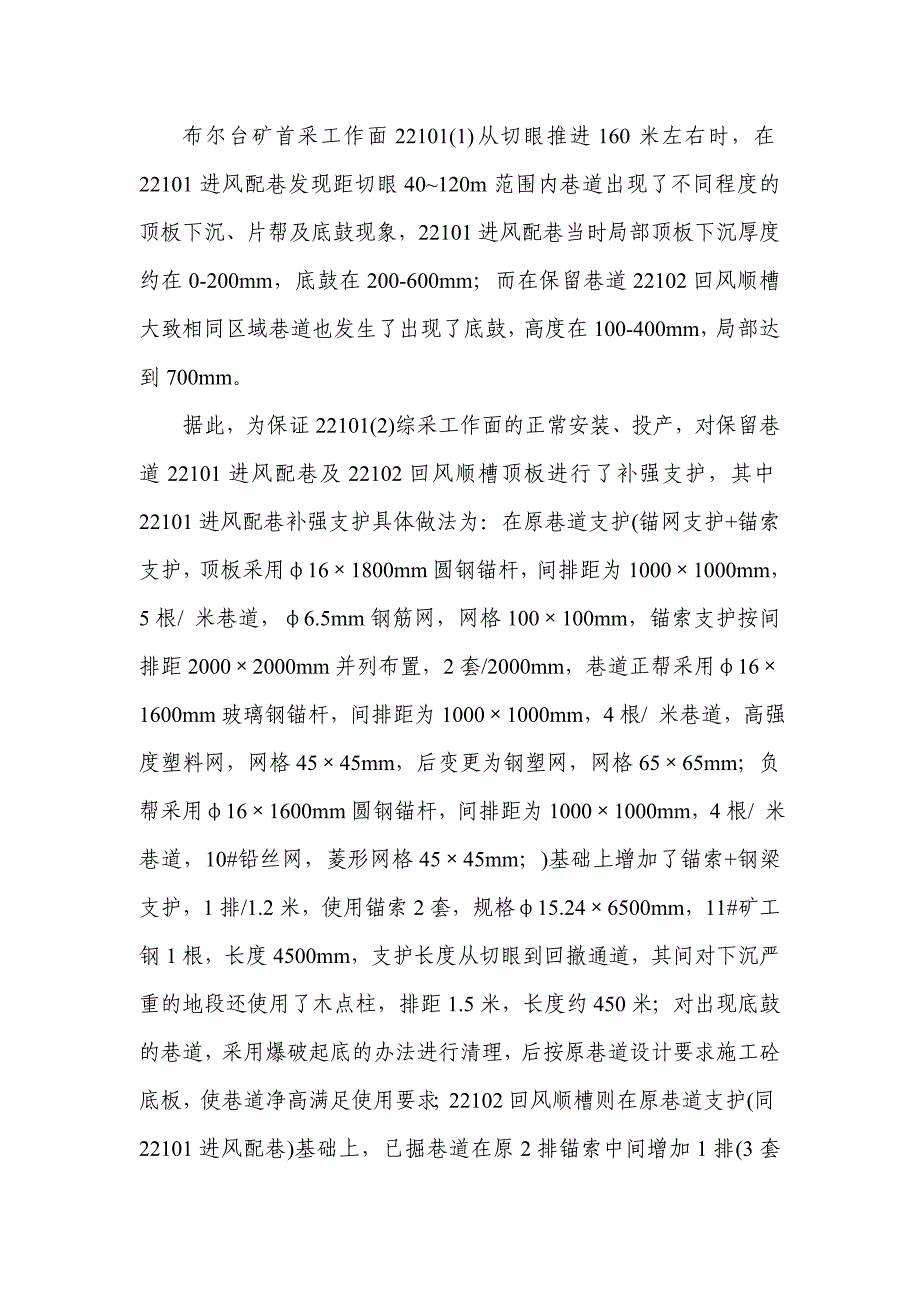 布尔台矿首采工作面 22101(1)从切眼推进 160 米左右时，在
22101 进风配巷发现距切眼 40~120m 范围内巷道出现了不同程度的
顶板下沉、片帮及底鼓现象，22101 进风配巷当时局部顶板下沉厚度
约在 0-200mm，底鼓在 200-600mm；而在保留巷道 22102 回风顺槽
大致相同区域巷道也发生了出现了底鼓，高度在 100-400mm，局部达
到 700mm。
据此，为保证 22101(2)综采工作面的正常安装、投产，对保留巷
道 22101 进风配巷及 22102 回风顺槽顶板进行了补强支护，其中
22101 进风配巷补强支护具体做法为：在原巷道支护(锚网支护+锚索
支护，顶板采用ф16×1800mm 圆钢锚杆，间排距为 1000×1000mm，
5 根/ 米巷道，ф6.5mm 钢筋网，网格 100×100mm，锚索支护按间
排距 2000×2000mm 并列布置，2 套/2000mm，巷道正帮采用ф16×
1600mm 玻璃钢锚杆，间排距为 1000×1000mm，4 根/ 米巷道，高强
度塑料网，网格 45×45mm，后变更为钢塑网，网格 65×65mm；负
帮采用ф16×1600mm 圆钢锚杆，间排距为 1000×1000mm，4 根/ 米
巷道，10#铅丝网，菱形网格 45×45mm；)基础上增加了锚索+钢梁
支护，1 排/1.2 米，使用锚索 2 套，规格ф15.24×6500mm，11#矿工
钢 1 根，长度 4500mm，支护长度从切眼到回撤通道，其间对下沉严
重的地段还使用了木点柱，排距 1.5 米，长度约 450 米；对出现底鼓
的巷道，采用爆破起底的办法进行清理，后按原巷道设计要求施工砼
底板，使巷道净高满足使用要求；22102 回风顺槽则在原巷道支护(同
22101 进风配巷)基础上，已掘巷道在原 2 排锚索中间增加 1 排(3 套